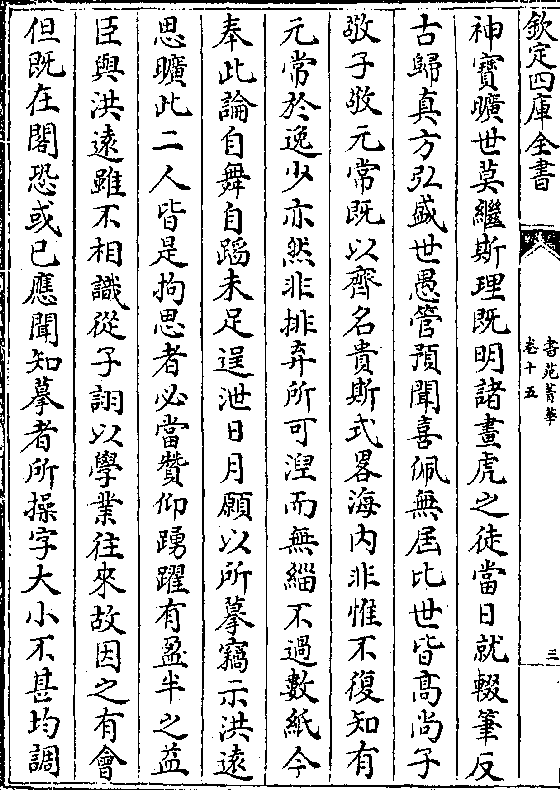 欽定四庫全書
書苑菁華
卷十五
三
神寶曠世莫繼斯理既明諸畫虎之徒當日就輟筆反
古歸真方弘盛世愚管預聞喜佩無屆比世皆髙尚子
敬子敬元常既以齊名貴斯式畧海内非惟不復知有
元常於逸少亦然非排弃所可湼而無緇不過數紙今
奉此論自舞自蹈未足逞泄日月願以所摹竊示洪逺
思曠此二人皆是拘思者必當贊仰踴躍有盈半之益
臣與洪逺雖不相識從子詡以學業往來故因之有會
但既在閣恐或已應聞知摹者所操字大小不甚均調